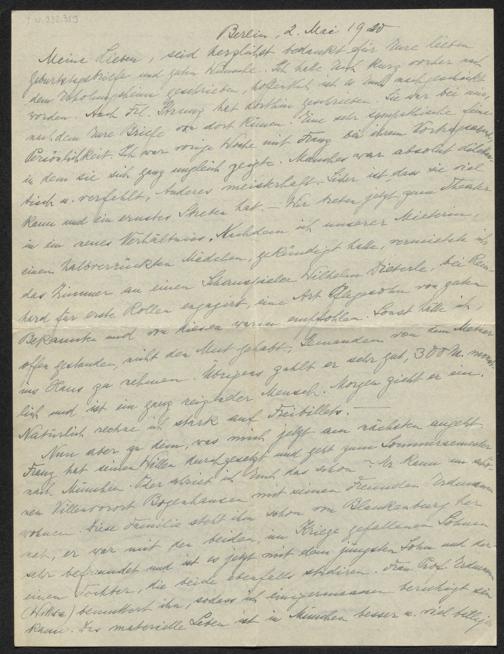 Berlin, 2. Mai 1920
Meine Lieben, seid herzlichst bedankt für Eure lieben
Geburtstagsbriefe und guten Wünsche. Ich habe Euch kurz vorher nach
dem Erholungsheim geschrieben, hoffentlich ist es Euch nachgeschickt
worden. Auch Frl. hat dorthin geschrieben. Sie war bei uns,
nachdem Eure Briefe von dort kamen. Eine sehr sympathische feine
Persönlichkeit. Ich war vorige Woche mit Franz bei ihrem
in dem sie sich ganz ungleich zeigte. Manches war absolut
u. verfehlt, Anderes meisterhaft. Sicher ist dass sie viel
kann und ein ernstes Streben hat. — Wir treten jetzt zum Theater
in ein neues Verhältniss. Nachdem ich unserer Mieterin,
einem halbverrückten Mädchen, gekündigt habe, vermietete ich
das Zimmer an einen Schauspieler Wilhelm Dieterle, bei Rein-
hard für erste Rollen engagirt, eine Art Pflegesohn von guten
Bekannten und von diesen warm empfohlen. Sonst hätte ich,
offen gestanden, nicht den Mut gehabt, Jemanden von dem Metier
ins Haus zu nehmen. Übrigens zahlt er sehr gut, 300 M. monat-
lich und ist ein ganz reizender Mensch. Morgen zieht er ein.
Natürlich rechne ich stark auf Freibillets. —
Nun aber zu dem, was mich jetzt am nächsten angeht.
Franz hat seinen Willen durchgesetzt und geht zum Sommersemester
nach München. Aber wisst Ihr Euch das schon — Er kann im
Villenvorort Bogenhausen mit seinen Freunden Erdmann
wohnen. Diese Familie steht ihm schon von Blankenburg her
nah, er war mit den beiden, im Kriege gefallenen Söhnen
sehr befreundet und ist es jetzt mit dem jüngsten Sohn und der
einen Tochter, die beide ebenfalls studiren. Frau Prof. Erdmann
bemuttert ihn, sodass ich einigermaassen beruhigt sein
kann. Das materielle Leben ist in München besser u. viel billiger